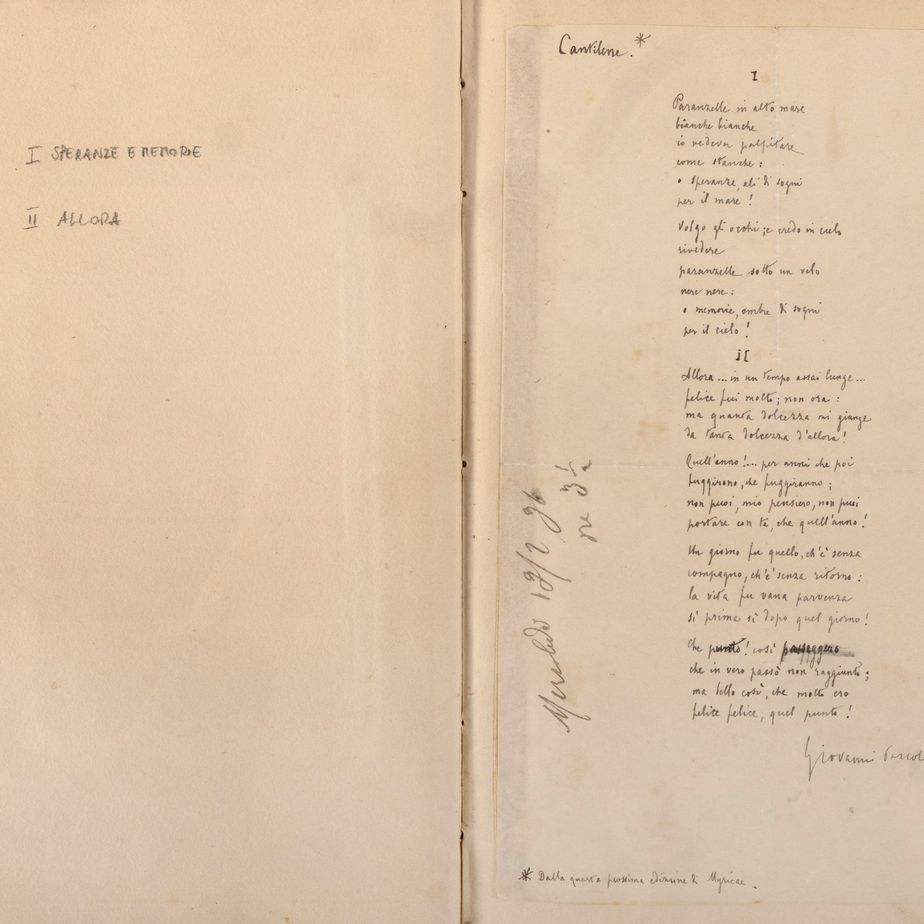 I SPERANZE E MEMORIE
II ALLORA
Cantilene.*
I
Paranzelle in alto mare
bianche bianche
io vedeva palpitare
come stanche:
o speranze, ali di sogni
per il mare!
Volgo gli occhi; e credo in cielo
rivedere
paranzelle sotto un velo
nere nere:
o memorie, ombre di sogni
per il cielo!
II
Allora... in un tempo assai lunge...
felice fui molto; non ora:
ma quanta dolcezza mi giunge
da tanta dolcezza d'allora!
Quell'anno!... per anni che poi
fuggirono, che fuggiranno;
non puoi, mio pensiero, non puoi
portare con te, che quell'anno!
Un giorno fu quello, ch'è senza
compagno, ch'è senza ritorno:
la vita fu vana parvenza
sì prima sì dopo quel giorno!
Che punto! così passeggero
che in vero passò non raggiunto;
ma bello così, che molto ero
felice felice, quel punto!
Giovanni Pascol
Mercoledì 12/2 96
ore 3
* Dalla quarta prossima edizione di Myricae.